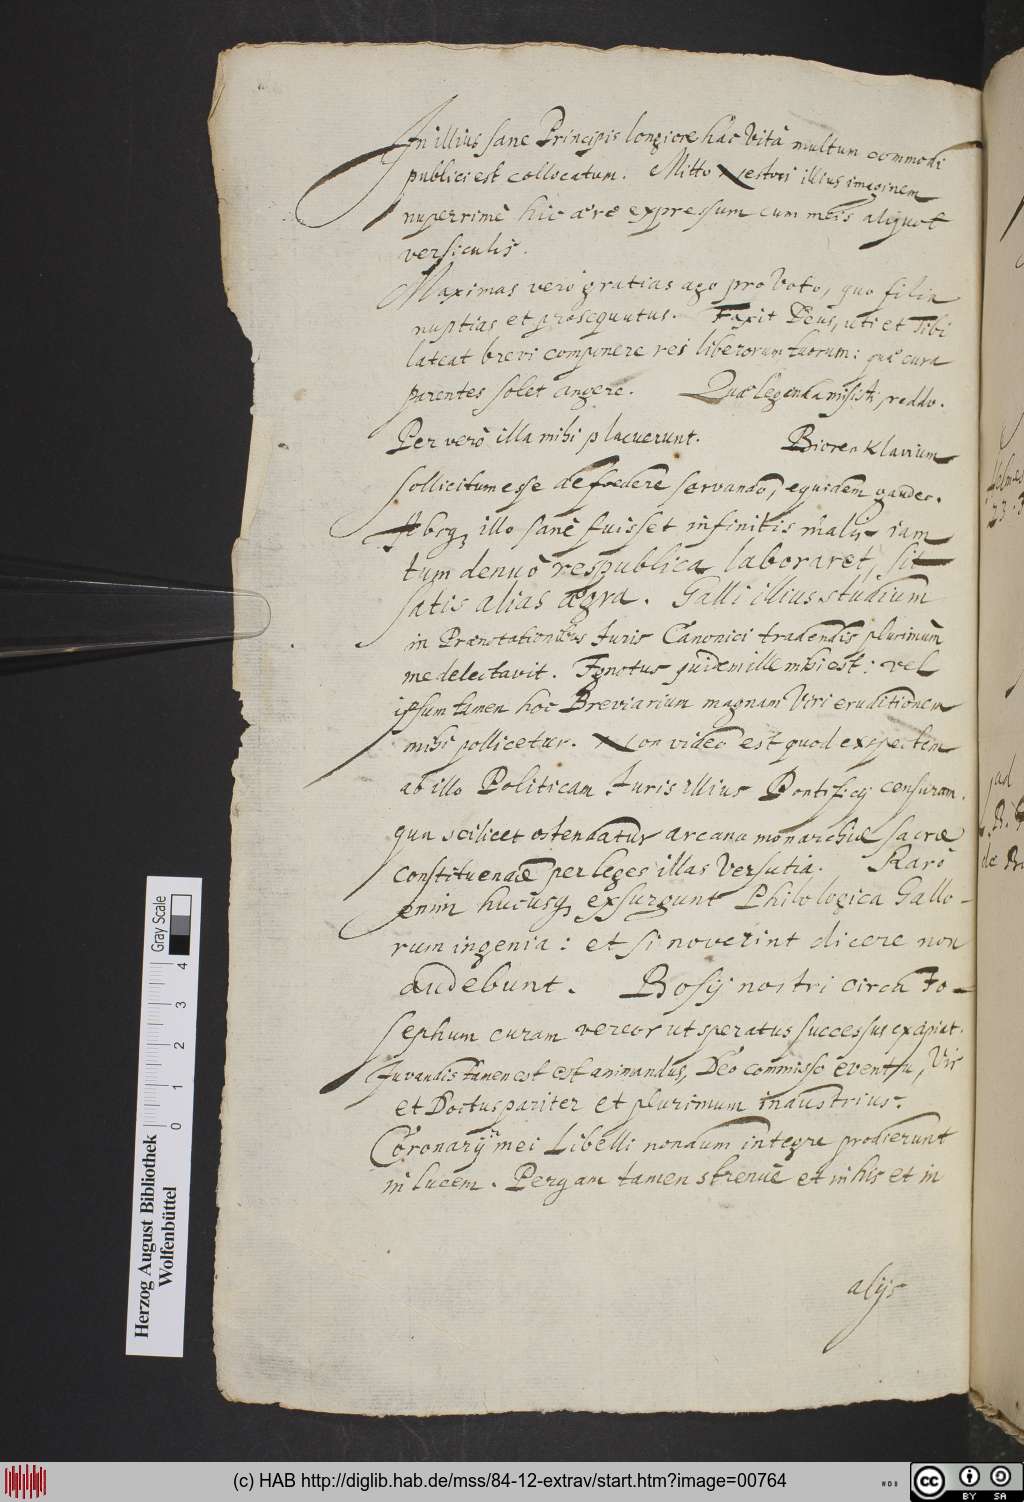 In illius sane Principis longiore hac Vitâ multum commodi
publici est collocatum. Mitto Nestori illius imaginem
nuperrimè hic ære expressum cum meis aliquot
versiculis.
Maximas verò gratias ago pro Voto, quo filiæ
nuptias et prosequutus. Faxit Deus, uti et Tibi
lateat brevi componere res liberorum tuorum: quæ cura
parentes solet angere. Quæ legenda misisti, reddo.
Per verò illa mihi placuerunt. Biorenklavium
sollicitum esse de foedere servando, equidem gaudeo.
Absq, illo sanè fuisset infinitis malis iam
tum denuò respublica laboraret, sit
satis alias ægra. Galli illius studium
in Prænotationibus Juris Canonici tradendis plurimùm
me delectavit. Ignotus quidem ille mihi est: vel
ipsum tamen hoc Breviarium magnam Viri eruditionem
mihi pollicetur. Non video est quod exspectem
ab illo Politicam Juris illius Pontificij censuram,
qua scilicet ostendatur arcana monarchiæ sacræ
constituendæ per leges illas Versutia. Rarò
enim hucusq, exsurgunt Philologica Gallo-
rum ingenia: et si noverint dicere non
audebunt. Bosij nostri circa Jo-
sephum curam vereor ut speratus successus excipiat.
Juvandis tamen est est animandus, Deo commisso eventu, Vir
et Doctus pariter et plurimum industrius.
Coronarij mei Libelli nondum integre prodierunt
in lucem. Pergam tamen strenuè et in his et in
alijs
Gray Scale
0 1 2 3 4
Herzog August Bibliothek
Wolfenbüttel
(c) HAB http://diglib.hab.de/mss/84-12-extrav/start.htm?image=00764
WDB
cc BY SA